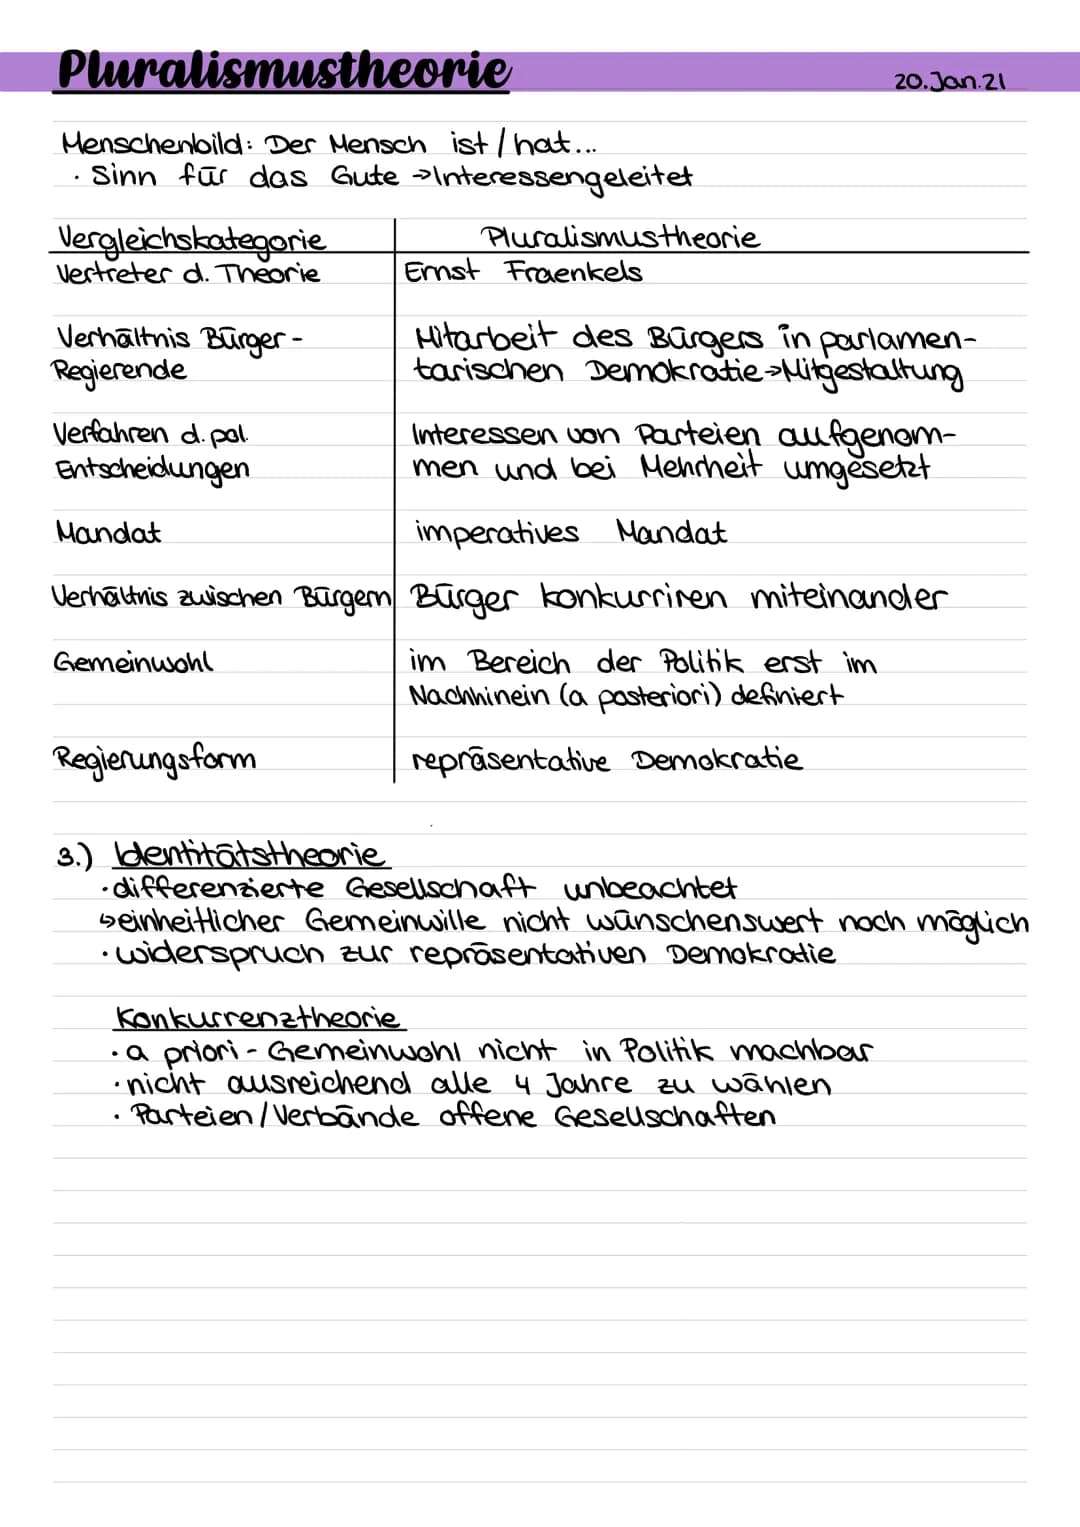 Pluralismustheorie
20. Jan. 21
Menschenbild: Der Mensch ist / hat...
· Sinn für das Gute → Interessengeleitet
Vergleichskategorie Pluralismustheorie
Vertreter d. Theorie Ernst Fraenkels
Verhältnis Bürger - Mitarbeit des Bürgers in parlamen-
Regierende tarischen Demokratie → Mitgestaltung
Verfahren d. pol. Interessen von Parteien aufgenom-
Entscheidungen men und bei Mehrheit umgesetzt
Mandat imperatives Mandat
Verhältnis zwischen Bürgern Bürger konkurriren miteinander
Gemeinwohl im Bereich der Politik erst im
Nachhinein (a posteriori) definiert
Regierungsform repräsentative Demokratie
3.) Identitätstheorie
· differenzierte Gesellschaft unbeachtet
↳ einheitlicher Gemeinwille nicht wünschenswert noch möglich
· widerspruch zur repräsentativen Demokratie
Konkurrenztheorie
· a priori - Gemeinwohl nicht in Politik machbar
· nicht ausreichend alle 4 Jahre zu wählen
· Parteien / Verbände offene Gesellschaften